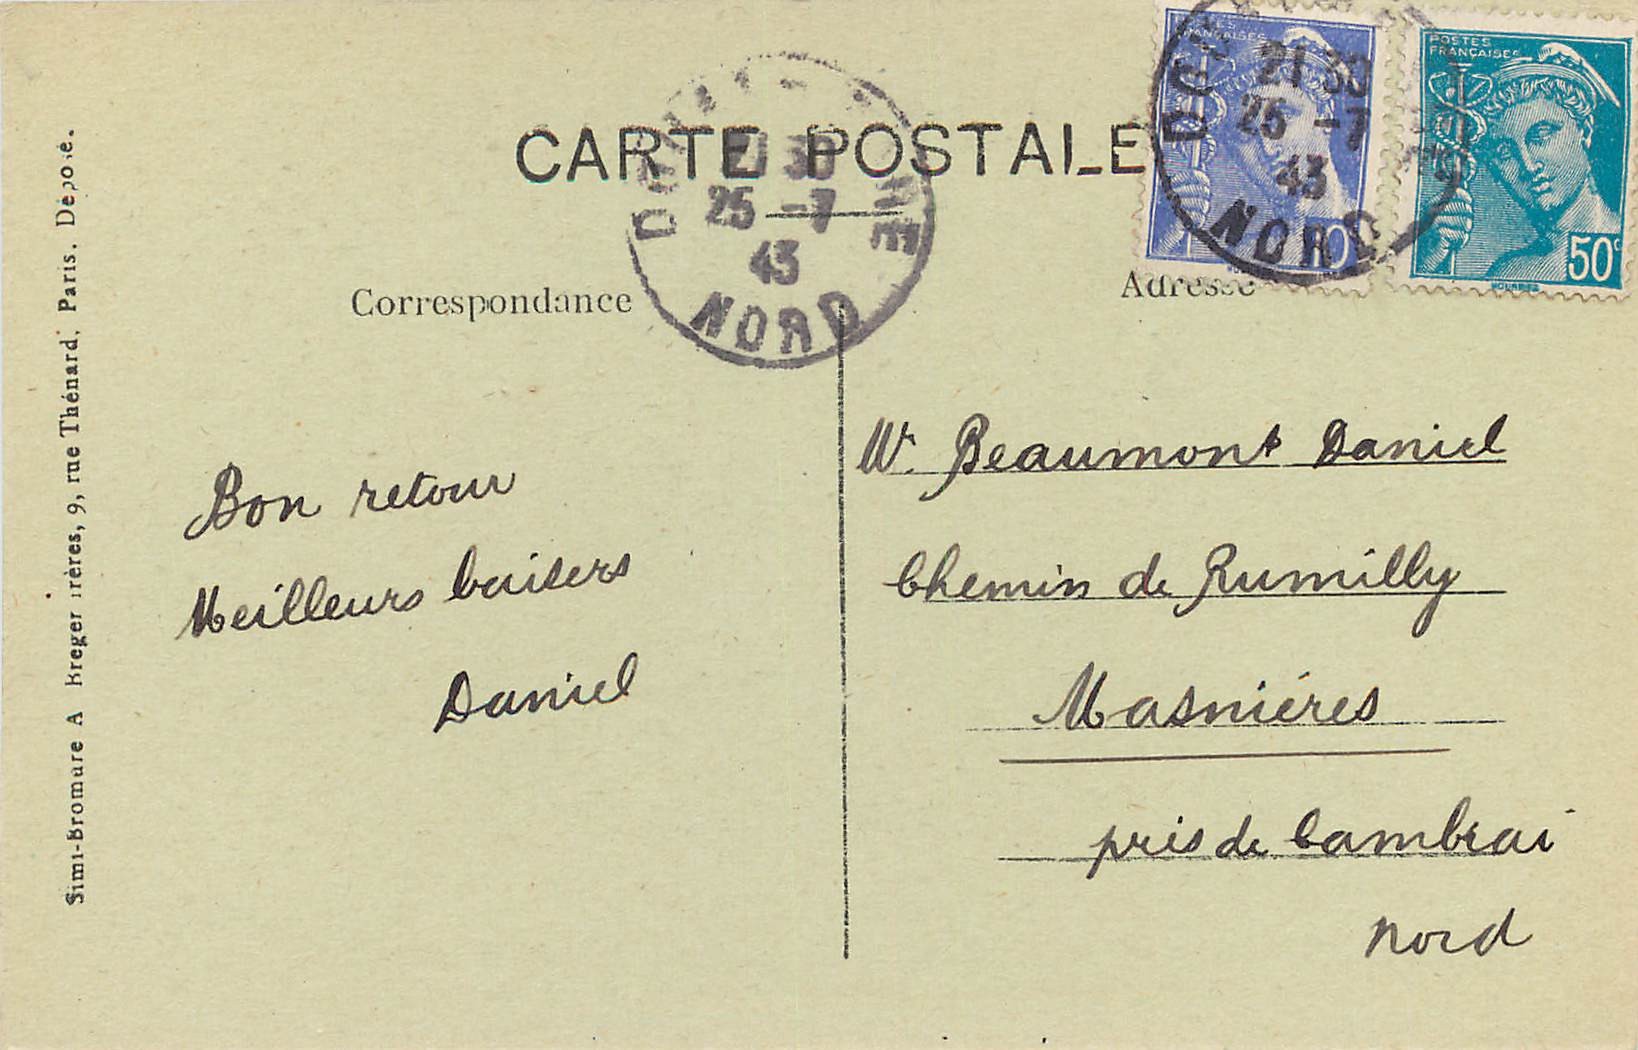 CARTE POSTALE
Correspondance
Adresse
POSTES
FRANÇAISES
21 30
25 -7
43
NORD
10
POSTES
FRANÇAISES
50c
21 30
25 -7
43
NORD
Simi-Bromure A Breger frères, 9, rue Thénard. Paris. Déposé.
Bon retour
Meilleurs baisers
Daniel
Mr Beaumont Daniel
Chemin de Rumilly
Masniéres
près de Cambrai
Nord